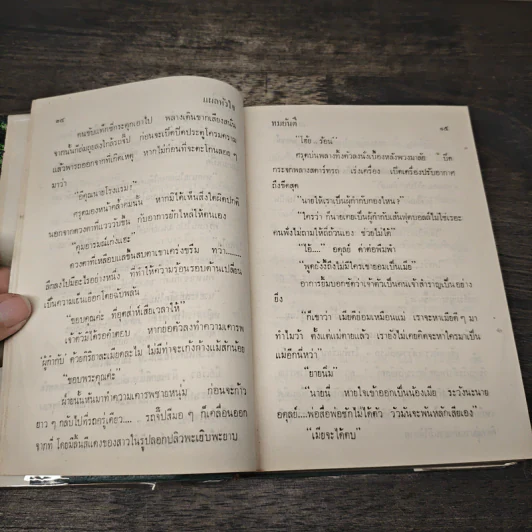 ๑๔
แผลหัวใจ
คนขับแท็กซี่กระตุกเอาไป พลางเดินขากเสียงสนั่น
จากนั้นก็ก้มถุงลงใกล้รถเข็น ก่อนจะเปิดปิดประตูโครมคราม
แล้วพารถออกจากที่เกิดเหตุ หากไม่ก่อนที่จะตะโกนลอย ๆ
มาว่า
"อีคุณนายโรงแรม?"
ครูคมองหน้าคล้ำคมนั้น หากมิได้เห็นสิ่งใดผิดปกติ
นอกจากดวงตาที่แวววับขึ้น กับอาการยักไหล่ให้ตนเอง
"คุมอารมณ์เก่งแฮะ"
ดวงตาที่เหลือบแลขึ้นสบตาเขาเคร่งขรึม ทว่า........
ลึกลงไปมีอะไรอย่างหนึ่ง ที่ทำให้ความร้อนรอบด้านเปลี่ยน
เป็นความเย็นเยือกโดยฉับพลัน
"ขอบคุณค่ะ ที่อุตส่าห์เสียเวลาให้"
เจ้าตัวมิได้รอคำตอบ หากย่อตัวลงทำความเคารพ
'ผู้กำกับ' ด้วยกิริยาละเมียดละไม ไม่มีท่าจะเก้งก้างแม้สักน้อย
"ขอบพระคุณค่ะ"
ฝ่ายนั้นหันมาทำความเคารพชายหนุ่ม ก่อนจะก้าว
ยาว ๆ กลับไปที่รถครู่เดียว.... รถจี๊ปสีมอ ๆ ก็เคลื่อนออก
จากที่ โดยมีสิ้นสีแดงของสาวในรูปลอกปลิวพะเยิบพะยาบ
ทมยันตี
๑๕
"โอ๊ย ร้อน"
ครูคบ่นพลางทิ้งตัวลงนั่งเบื้องหลังพวงมาลัย ปิด
กระจกพลางสตาร์ทรถ เร่งเครื่อง เปิดเครื่องปรับอากาศ
ถึงขีดสุด
"นายให้เราเป็นผู้กำกับกองไหน?"
"ใครว่า ก็นายเคยเป็นผู้กำกับเส้นฟุตบอลมิใช่เรอะ
คนพึ่งไม่ถามให้ถี่ถ้วนเอง ช่วยไม่ได้"
"ไอ้...." อดุลย์ คำต่อพึมพำ
"พูดยังงี้ถึงไม่มีใครเขายอมเป็นเมีย"
อาการยิ้มบอกชัดว่าเจ้าตัวเป็นคนเจ้าสำราญเป็นอย่าง
ยิ่ง
"ก็เขาว่า เมียคือย่อมเหมือนแม่ เราจะหาเมียดี ๆ มา
ทำไมว้า ตั้งแต่แม่ตายแล้ว เรายังไม่เคยคิดจะหาใครมาเป็น
แม่อีกนี่หว่า"
"ยายนั่ม"
"นายนี่ หายใจเข้าออกเป็นน้องเมีย ระวังนะนาย
อดุลย์....พ่อสื่อพ่อชักไม่ได้ตัว วัวมันจะพันหลักเสียเอง"
"เมียจะได้ตบ"